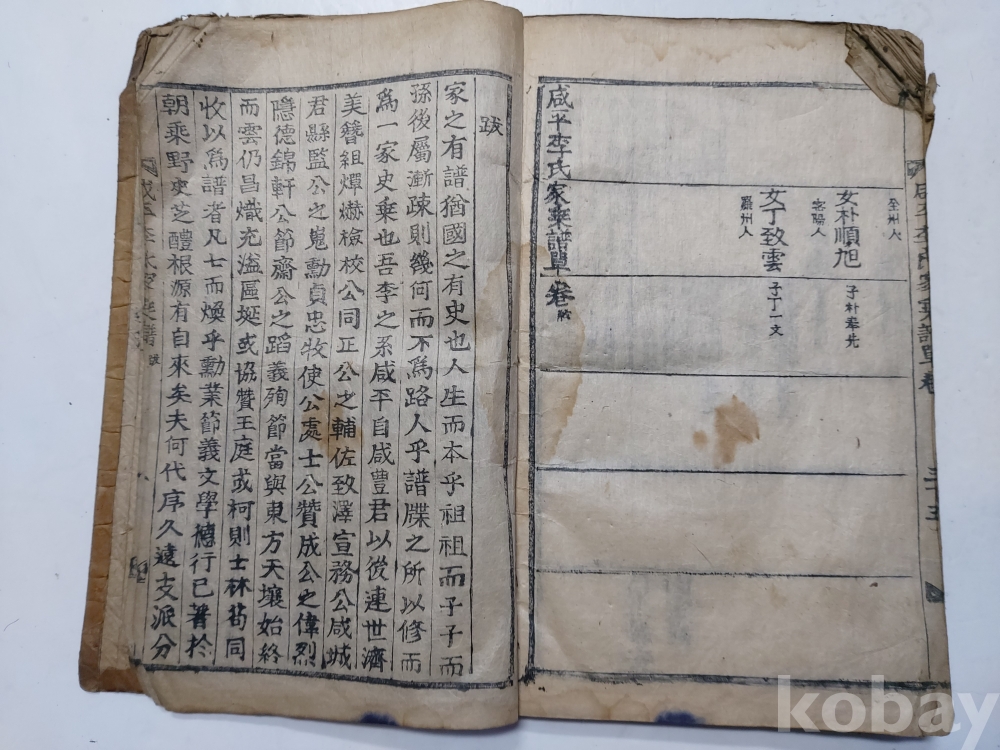 全州人
女朴順旭
密陽人
子朴奉先
女丁致雲
羅州人
子丁一文
咸平李氏家乘譜單卷
跋
家之有譜猶國之有史也人生而本乎祖祖而子子而
孫後屬漸疎則幾何而不爲路人乎譜牒之所以修而
爲一家史乘也吾李之系咸平自咸豊君以後連世濟
美簪組燀爀檢校公同正公之輔佐致澤宣務公咸城
君縣監公之嵬勳貞忠牧使公處士公贊成公之偉烈
隱德錦軒公節齋公之蹈義殉節當與東方天壤始終
而雲仍昌熾充溢區埏或協贊王庭或柯則士林苟同
收以爲譜者凡七而煥乎勳業節義文學德行已著於
朝乘野史芝醴根源有自來矣夫何代序久遠支派分
kobay